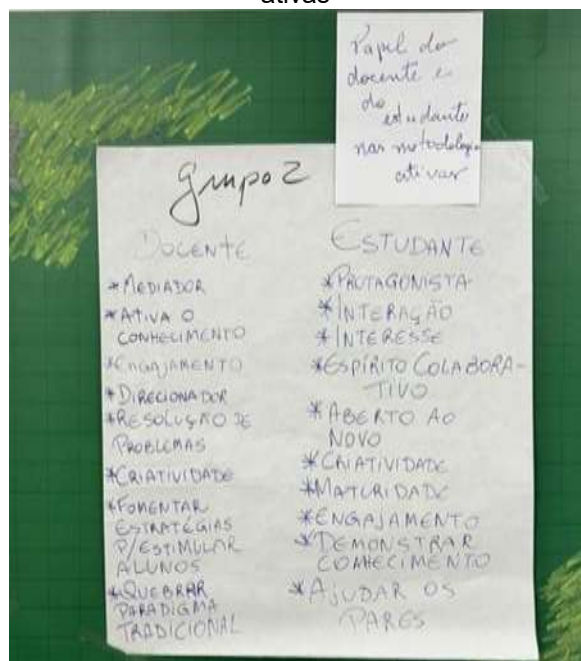 ativas
Papel do
docente e
do estudante
nas metodologias
ativas
grupo 2
DOCENTE
*MEDIADOR
*ATIVA O
CONHECIMENTO
*ENGAJAMENTO
*DIRECIONADOR
*RESOLUÇÃO DE
PROBLEMAS
*CRIATIVIDADE
*FOMENTAR
ESTRATÉGIAS
P/ESTIMULAR
ALUNOS
*QUEBRAR
PARADIGMA
TRADICIONAL
ESTUDANTE
*PROTAGONISTA
*INTERAÇÃO
*INTERESSE
*ESPÍRITO COLABORA-
TIVO
*ABERTO AO
NOVO
*CRIATIVIDADE
*MATURIDADE
*ENGAJAMENTO
*DEMONSTRAR
CONHECIMENTO
*AJUDAR OS
PARES